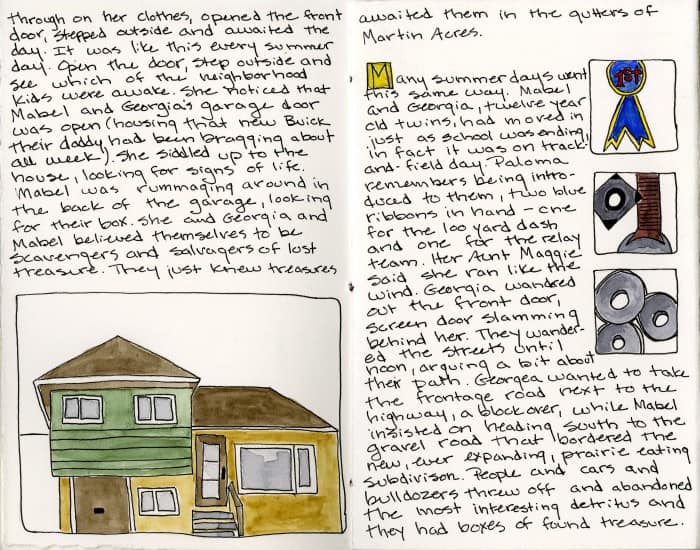 through on her clothes, opened the front
door, stepped outside and awaited the
day. It was like this every summer
day. Open the door, step outside and
see which of the neighborhood
kids were awake. She noticed that
Mabel and Georgia's garage door
was open (housing that new Buick
their daddy had been bragging about
all week). She siddled up to the
house, looking for signs of life.
Mabel was rummaging around in
the back of the garage, looking
for their box. She and Georgia and
Mabel believed themselves to be
scavengers and salvagers of lost
treasure. They just knew treasures
awaited them in the gutters of
Martin Acres.
Many summer days went
this same way. Mabel
and Georgia, twelve year
old twins, had moved in
just as school was ending,
in fact it was on track-
and-field day. Paloma
remembers being intro-
duced to them, two blue
ribbons in hand - one
for the 100 yard dash
and one for the relay
team. Her Aunt Maggie
said she ran like the
wind. Georgia wandred
out the front door,
screen door slamming
behind her. They wander-
ed the streets until
noon, arguing a bit about
their path. Georgea wanted to take
the frontage road next to the
highway, a block over, while Mabel
insisted on heading south to the
gravel road that bordered the
new, ever expanding, prairie eating
subdivison. People and cars and
bulldozers threw off and abandoned
the most interesting detritus and
they had boxes of found treasure.
1st